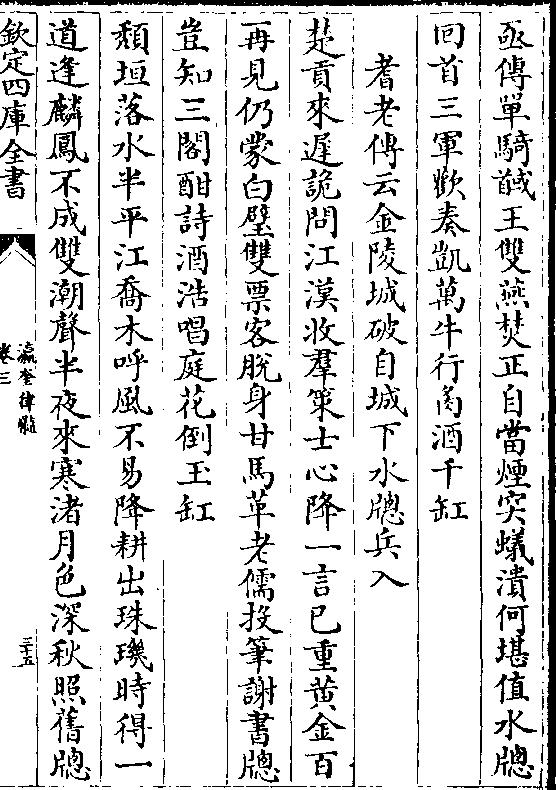 亟傳單騎馘王雙燕焚正自當煙突蟻潰何堪值水牕
回首三軍歡奏凱萬牛行㒼酒千缸
耆老傳云金陵城破自城下水牕兵入
楚貢來遲詭問江漢收羣策士心降一言已重黄金百
再見仍蒙白璧雙票客脫身甘馬革老儒投筆謝書牕
豈知三閣酣詩酒浩唱庭花倒玉缸
頽垣落水半平江喬木呼風不易降耕出珠璣時得一
道逢麟鳳不成雙潮聲半夜來寒渚月色深秋照舊牕
欽定四庫全書
瀛奎律髓
卷三
三十五